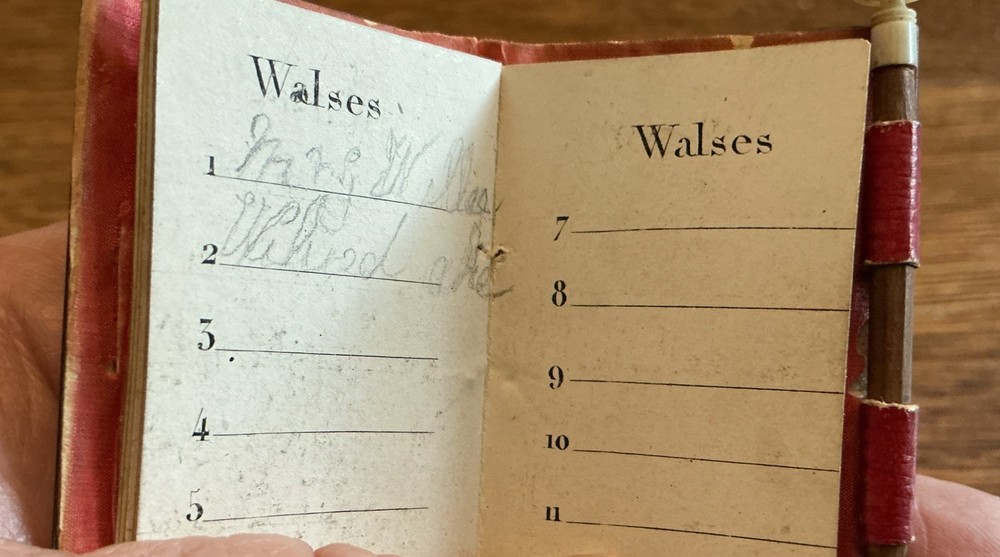 Walses
1 Mrs
2
3
4
5
Walses
7
8
9
10
11